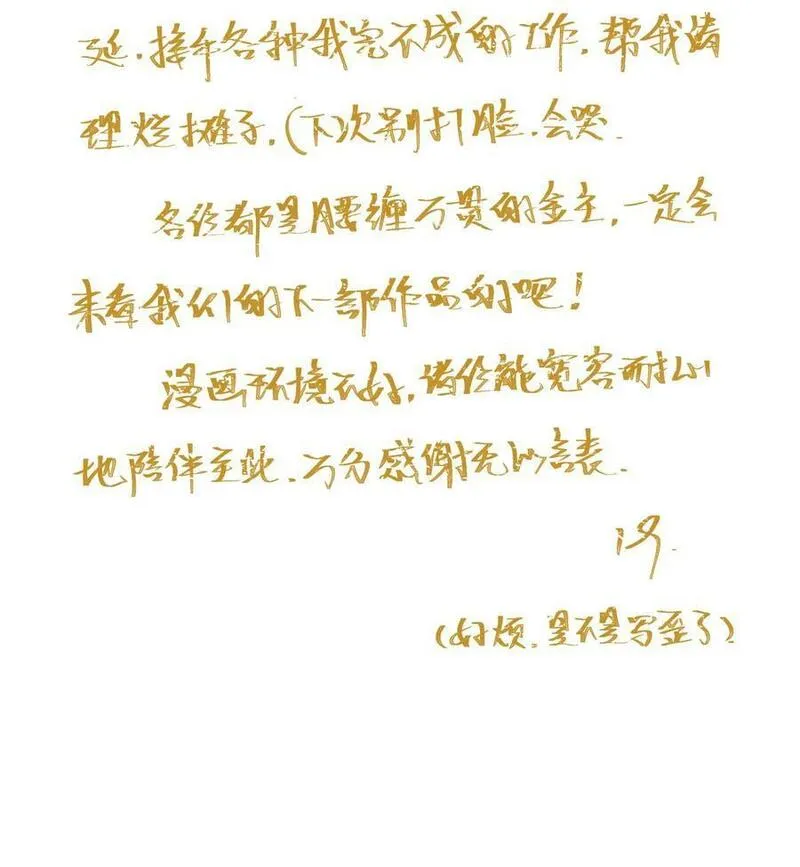 延.接手各种我完不成的工作.帮我清
理烂摊子.(下)次别打脸.会哭.
各位都是腰缠万贯的金主,一定会
来看我们的下一部作品的吧!
漫画环境不好,诸位能宽容而耐心
地陪伴至此.万分感谢无以言表.
(好烦.是不是写歪了)